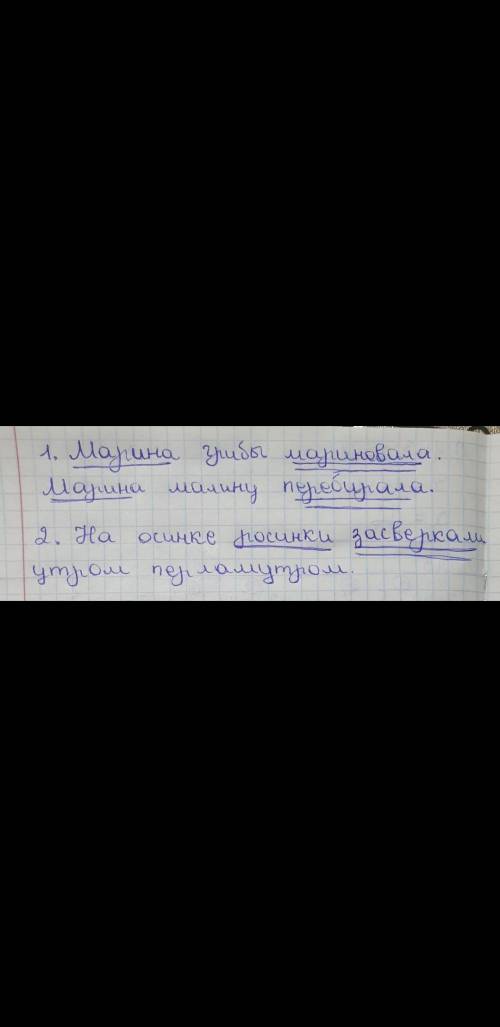 1. Марина грибы мариновала.
Марина малину перебирала.
2. На осинке росинки засверкали
утром перламутром.